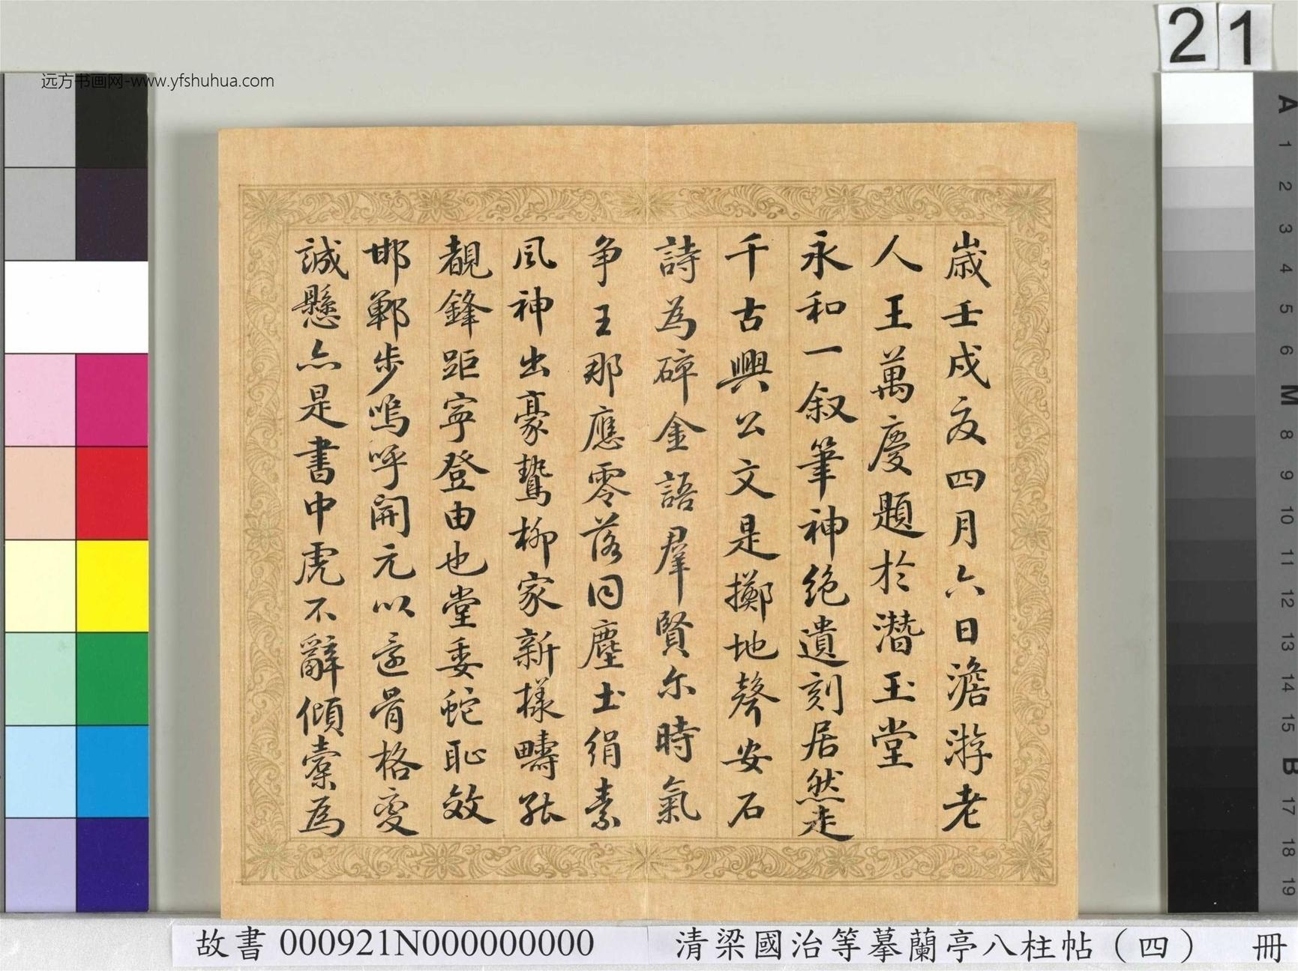 21
远方书画网-www.yfshuhua.com
歳壬戌夜四月六日澹游老
人王萬慶題於潛玉堂
永和一叙筆神絶遺刻居然走
千古興公文是擲地聲安石
詩為碎金語羣賢尓時氣
争王那應零落同塵土絹素
風神出豪鷙柳家新樣疇能
覩鋒距寜登由也堂委蛇恥效
邯鄲步嗚呼開元以還骨格变
誠懸亦是書中虎不辭傾橐為
A
1
2
3
4
5
6
M
8
9
10
11
12
13
14
15
B
17
18
19
故書 000921N000000000 清梁國治等摹蘭亭八柱帖（四） 冊